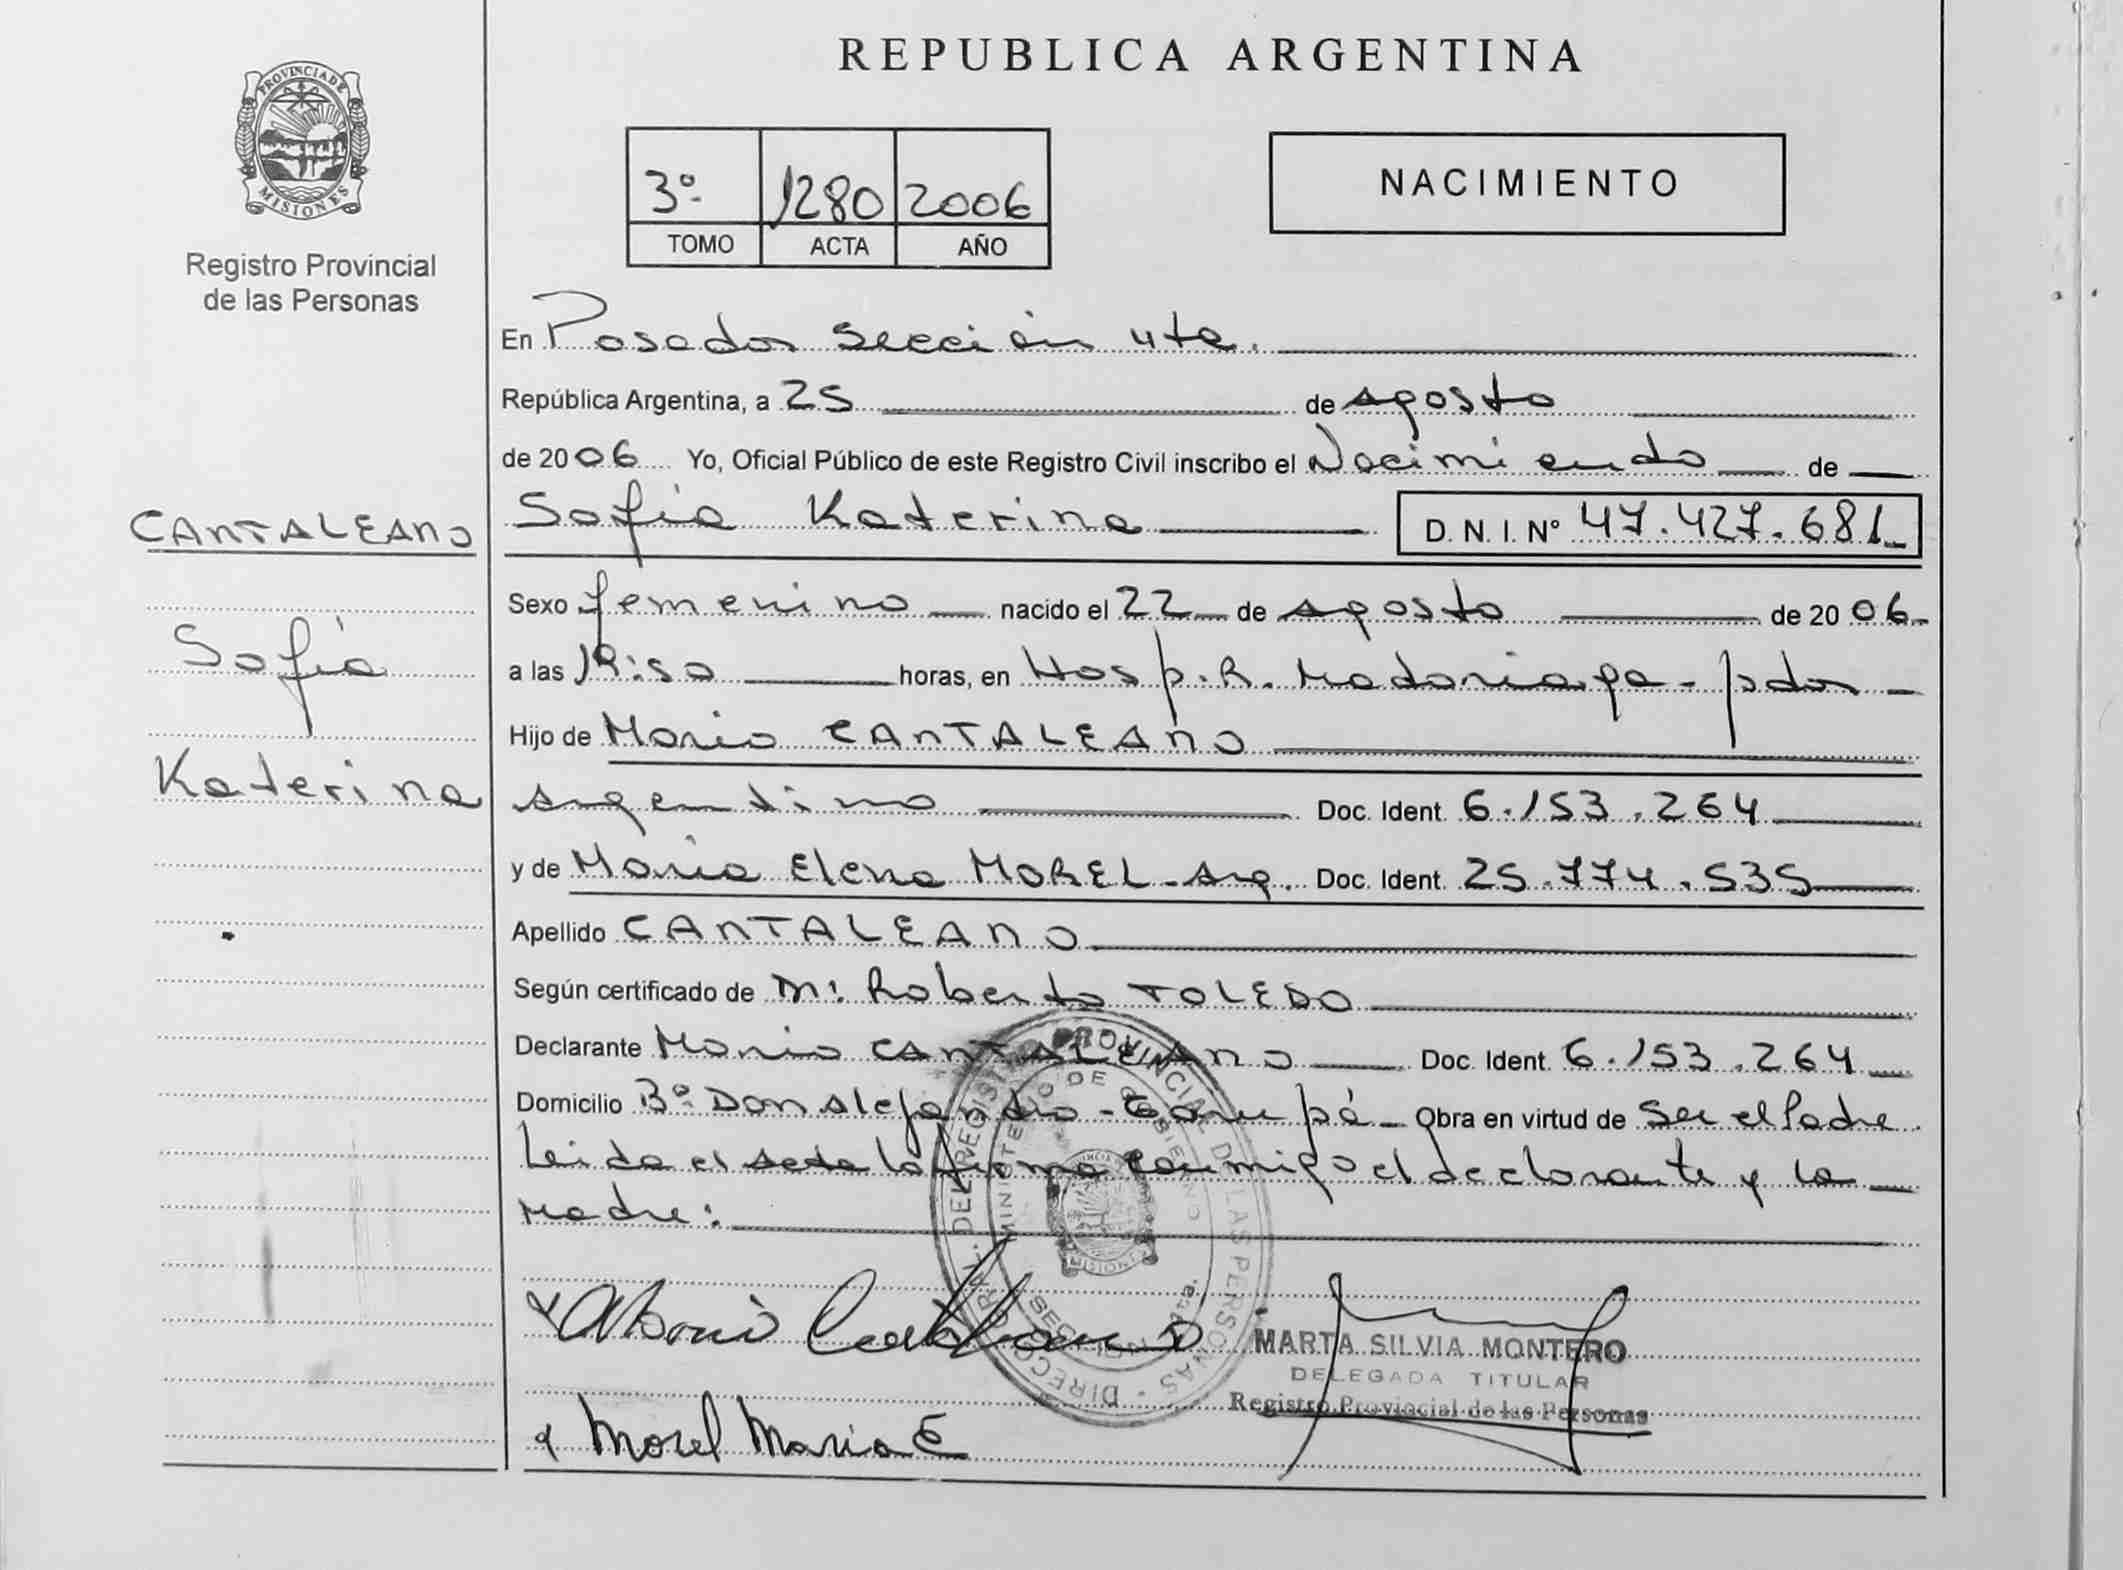 REPUBLICA ARGENTINA
PROVINCIA DE
MISIONES
Registro Provincial
de las Personas
3º 1280 2006
TOMO ACTA AÑO
NACIMIENTO
En Posadas Sección 4ta.
República Argentina, a 25 de agosto
de 2006 Yo, Oficial Público de este Registro Civil inscribo el Nacimiento de
CANTALEANO
Sofía
Katerina
Sofía Katerina D. N. I. Nº 47.427.681
Sexo femenino nacido el 22 de agosto de 2006
a las horas, en Hosp. R. Madariaga - pdas
Hijo de Mario CANTALEANO
argentino Doc. Ident. 6.153.264
y de María Elena MOREL - Arg. Doc. Ident. 25.774.535
Apellido CANTALEANO
Según certificado de Roberto TOLEDO
Declarante Mario CANTALEANO Doc. Ident. 6.153.264
Domicilio Bº Don Alejandro - Garupá - Obra en virtud de Ser el Padre.
Leida el acta la firma conmigo el declarante y la
Madre:
DIRECCION GRAL. DEL REGISTRO PROVINCIAL DE LAS PERSONAS
MINISTERIO DE GOBIERNO
MISIONES
SECCION 4ta.
MARTA SILVIA MONTERO
DELEGADA TITULAR
Registro Provincial de las Personas
Morel Maria E